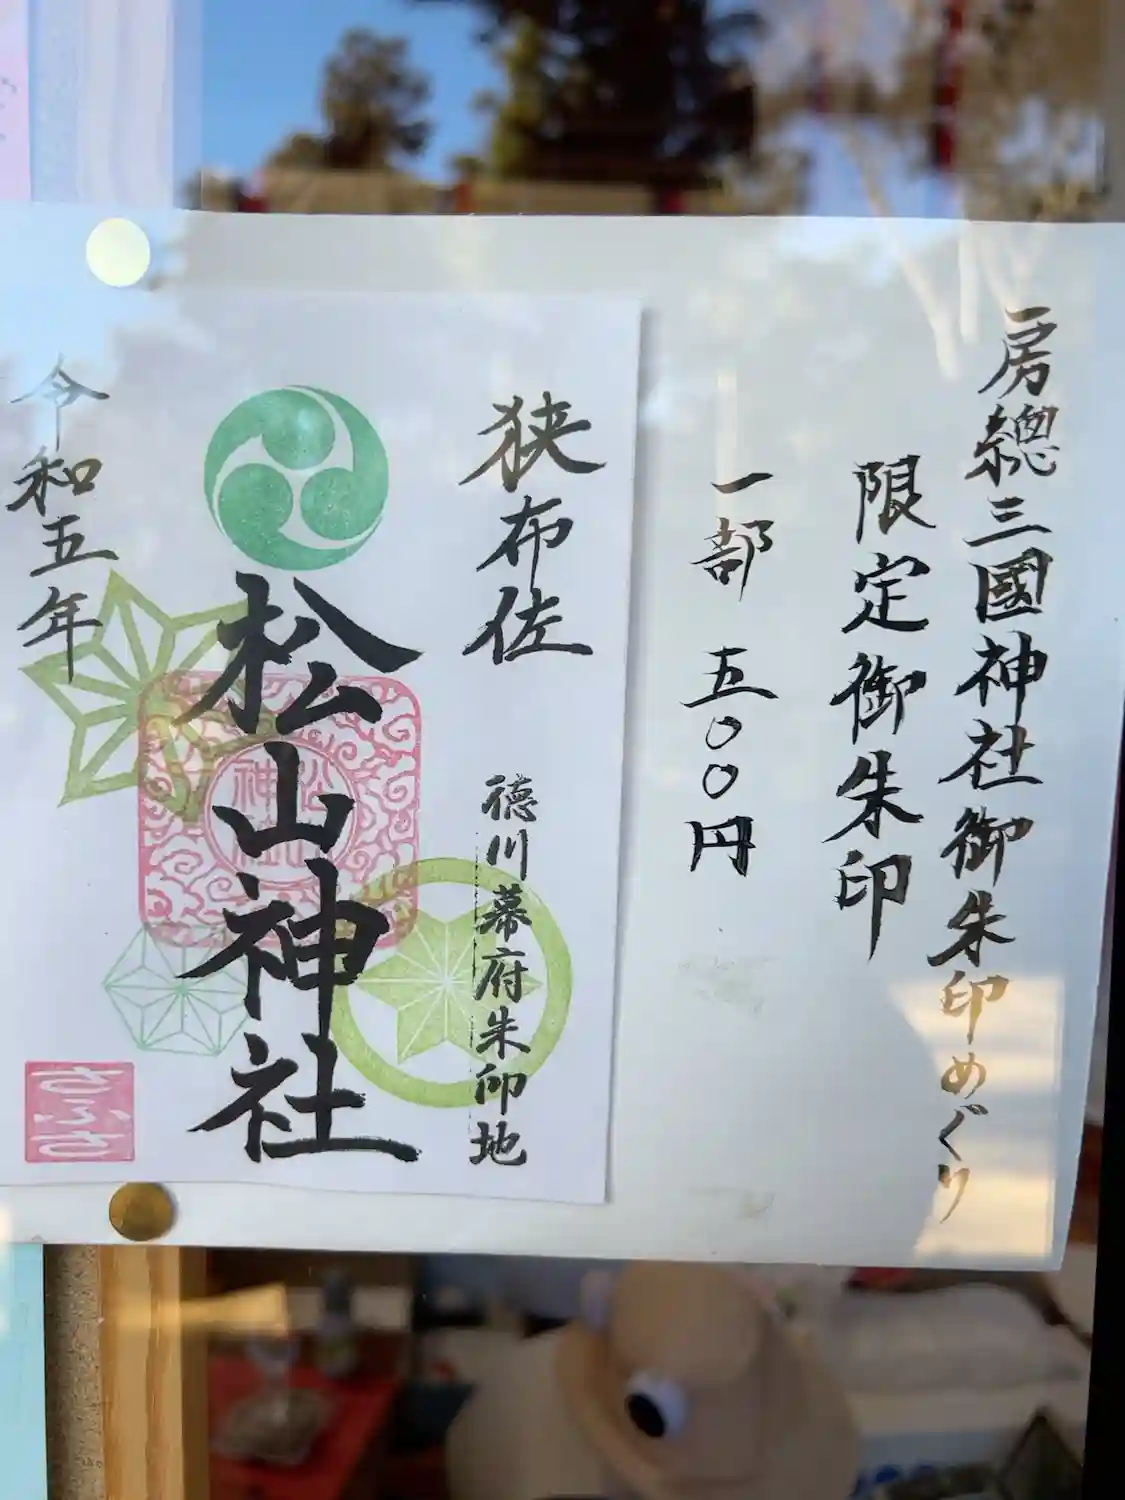 房總三國神社御朱印めぐり
限定御朱印
一部 五〇〇円
狭布佐
徳川幕府朱印地
松山神社
令和五年
さふさ